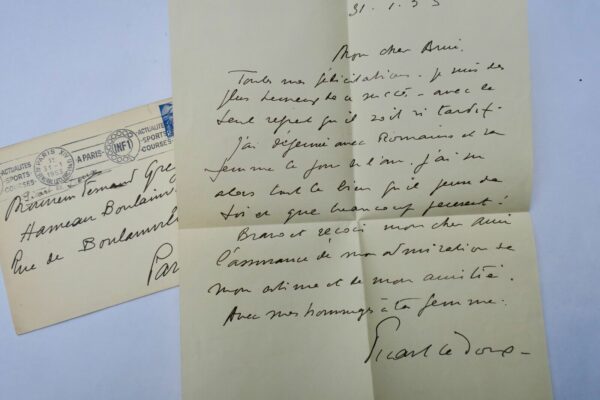 31. 1. 53
Mon cher Ami.
Toutes mes félicitations. Je suis des
plus heureux de ce succès - avec le
seul regret qu'il soit si tardif.
J'ai déjeuné avec Romains et sa
femme le jour de l'an. J'ai su
alors tout le bien qu'il pense de
toi et que beaucoup pensent !
Bravo et reçois mon cher Ami
l'assurance de mon admiration de
mon estime et de mon amitié.
Avec mes hommages à ta femme.
Picart le Doux
ACTUALITÉS
SPORTS
COURSES
PARIS XVI
A PARIS
INF1
ACTUALITÉS
SPORTS
COURSES
Monsieur Fernand Greg
Hameau Boulainv
Rue de Boulainvil
Par